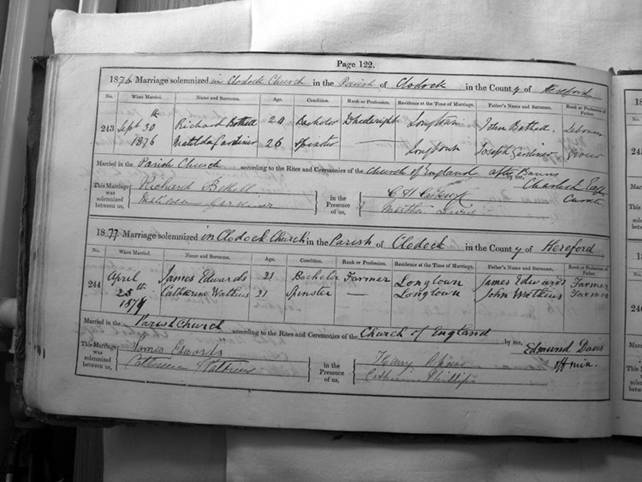 Page 122.
1876 Marriage solemnized in Clodock Church in the Parish of Clodock in the County of Hereford
No. When Married. Name and Surname. Age. Condition. Rank or Profession. Residence at the Time of Marriage. Father's Name and Surname. Rank or Profession of Father.
243 Sept 30th Richard Bothell 24 Bachelor Longtown John Bothell
1876 Matilda Gardiner 26 Spinster — Longtown Joseph Gardiner
Married in the Parish Church according to the Rites and Ceremonies of the Church of England after Banns by me,
This Marriage was solemnized between us, Richard Bothell in the Presence of us,
Matilda Gardiner Martha
Curate
1877 Marriage solemnized in Clodock Church in the Parish of Clodock in the County of Hereford
No. When Married. Name and Surname. Age. Condition. Rank or Profession. Residence at the Time of Marriage. Father's Name and Surname. Rank or Profession of Father.
244 April James Edwards 21 Bachelor Farmer Longtown James Edwards Farmer
25th Catherine Watkins 21 Spinster — Longtown John Watkins Farmer
1877
Married in the Parish Church according to the Rites and Ceremonies of the Church of England by me, Edmund Davis
off. min.
This Marriage was solemnized between us, James Edwards in the Presence of us, Henry
Catherine Watkins Catherine Phillips